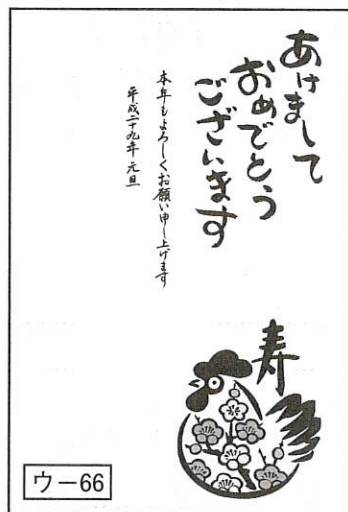 あけまして
おめでとう
ございます
本年もよろしくお願い申し上げます
平成二十九年元旦
寿
ウー66